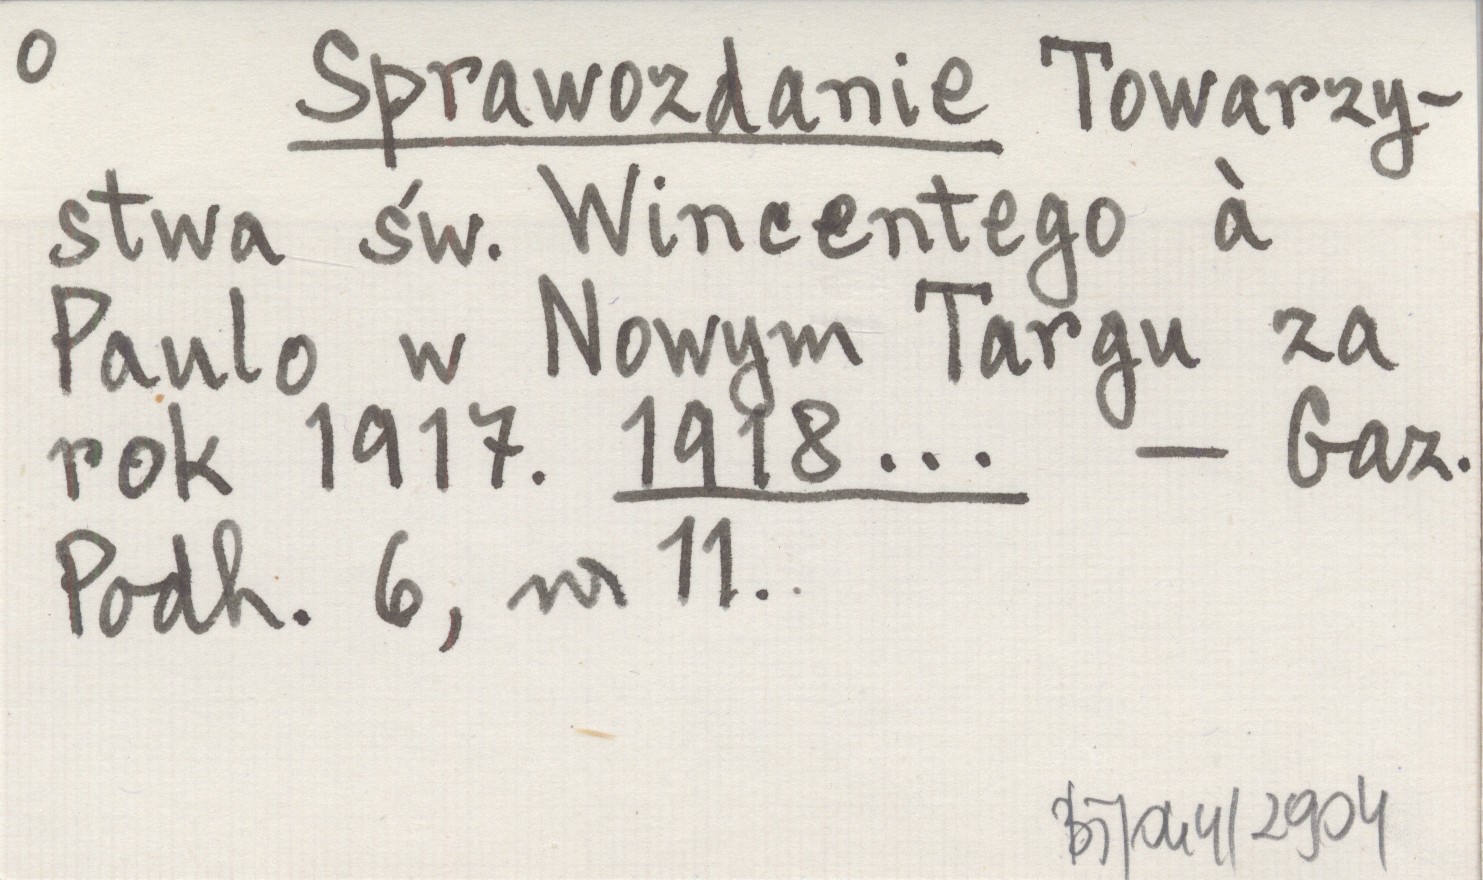 o Sprawozdanie Towarzy-
stwa św. Wincentego à
Paulo w Nowym Targu za
rok 1917. 1918... — Gaz.
Podh. 6, nr 11..
2904